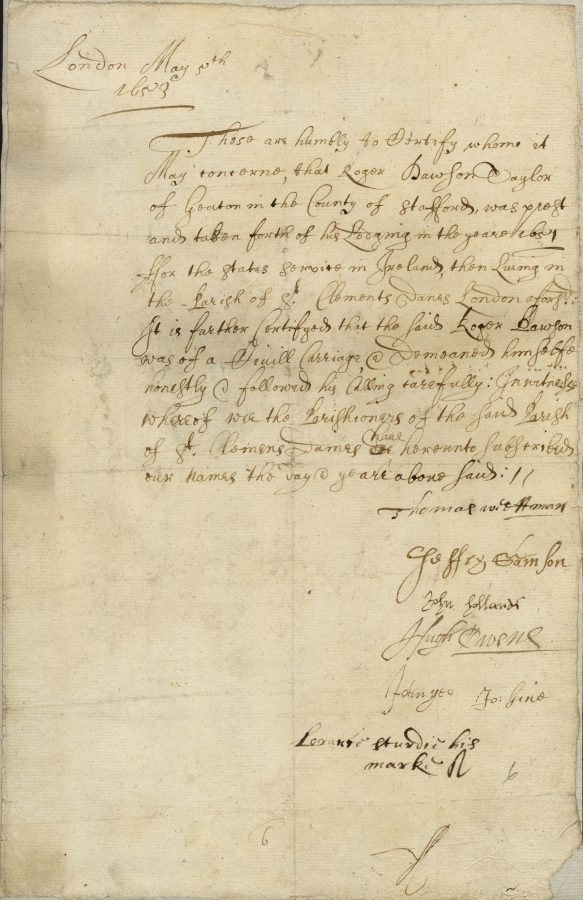 London May 5th
1653
These are humbly to Certify whome it
May concerne, that Roger Dawson Taylor
of Geaton in the County of Stafford, was prest
and taken forth of his Lodging in the yeare 1651
ffor the states service in Ireland, then Living in
the Parish of St. Clements Danes London aforsd:
It is further Certifyed that the said Roger Dawson
was of a Civill Carriage & Demeaned himselfe
honestly & followed his Calling Carefully: In witnesse
whereof wee the Parishioners of the said Parish
of St. Clemens Danes have hereunto subscribed
our names the day & yeare above said: //
Thomas
Jeffrey Samson
John Hollande
Hugh Owene
Jo:
sturdie his
marke
6
6